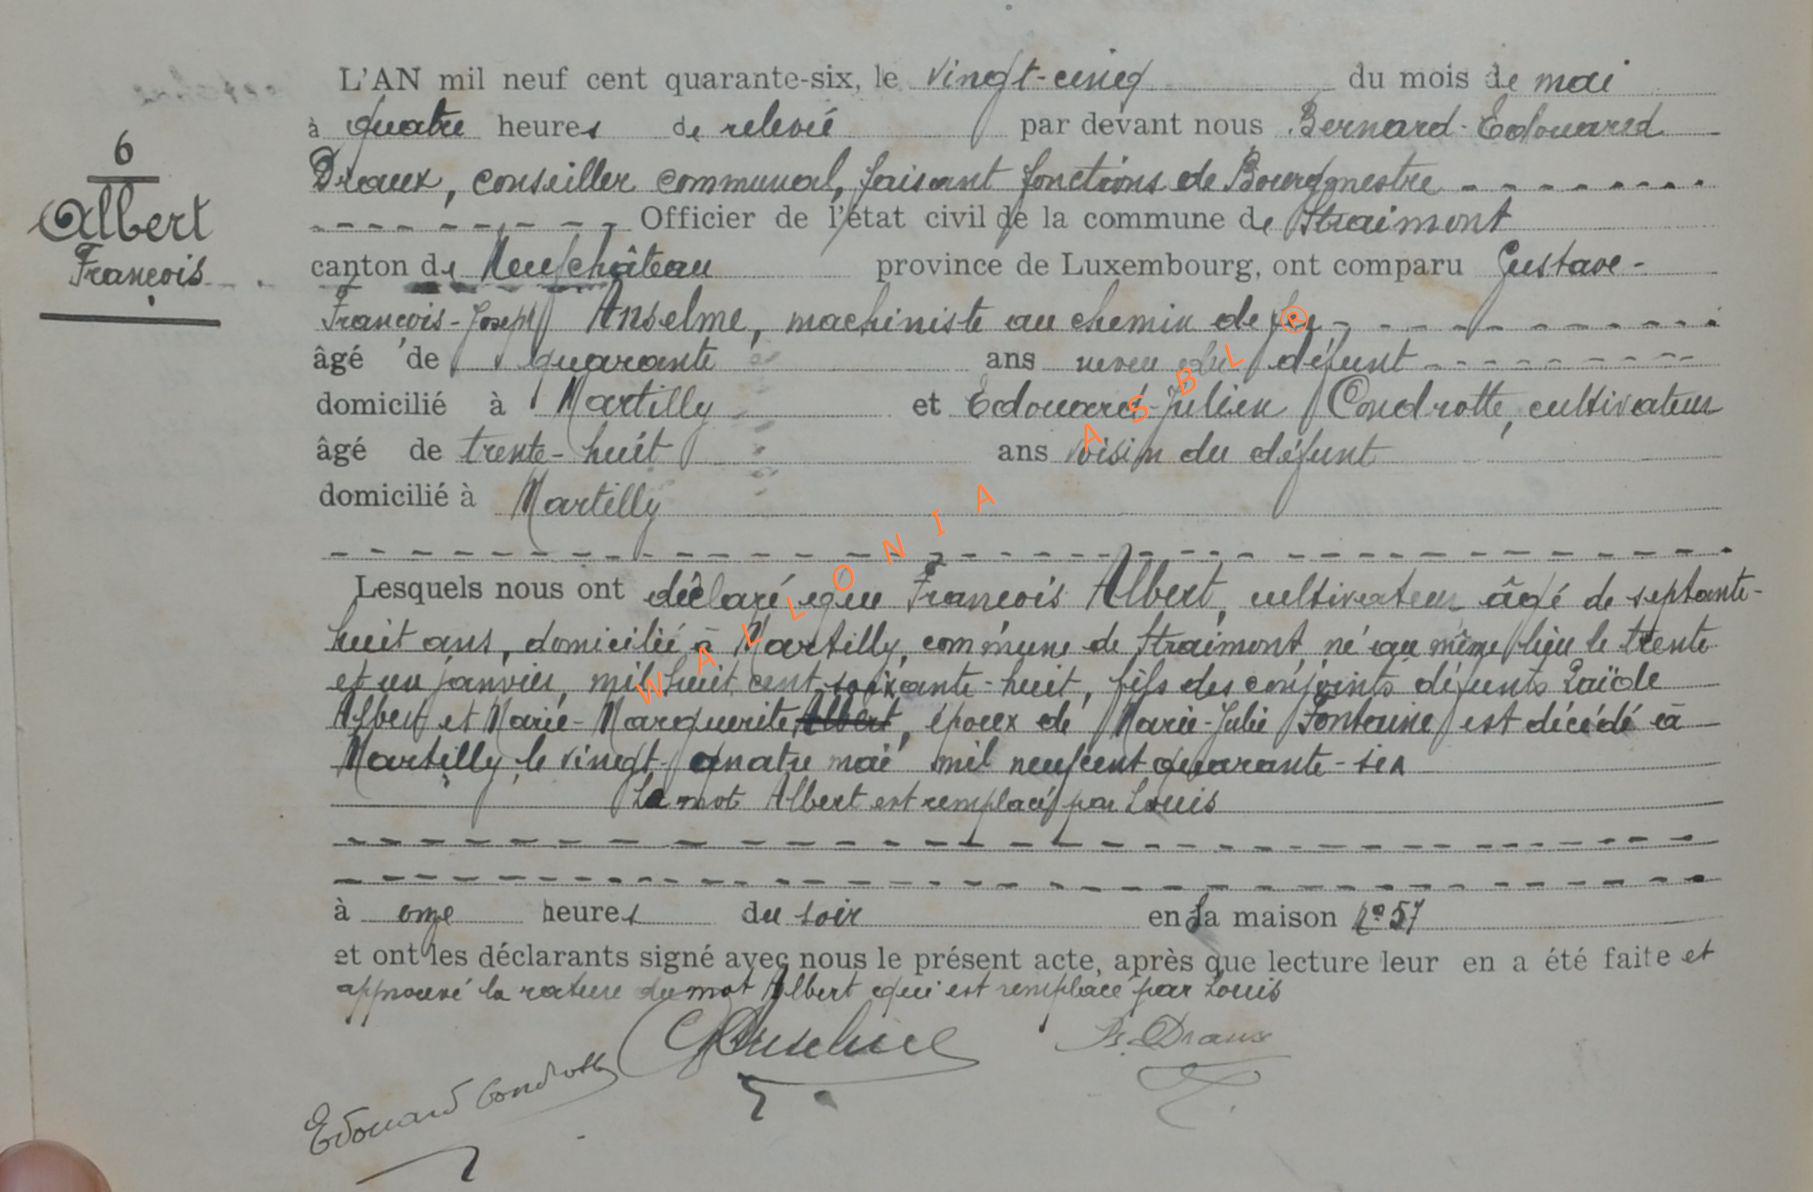 6
Albert
François
L'AN mil neuf cent quarante-six, le vingt-cinq du mois de mai
à quatre heures de relevée par devant nous Bernard-Edouard
Draux, conseiller communal, faisant fonctions de Bourgmestre
Officier de l'état civil de la commune de Straimont
canton de Neufchâteau province de Luxembourg, ont comparu Gustave-
François-Joseph Anselme, machiniste au chemin de fer
âgé de quarante ans neveu du défunt
domicilié à Martilly et Edouard-Julien Condrotte, cultivateur
âgé de trente-huit ans voisin du défunt
domicilié à Martilly
Lesquels nous ont déclaré que François Albert, cultivateur âgé de septante-
huit ans, domicilié à Martilly, commune de Straimont né au même lieu le trente
et un janvier, mil huit cent soixante-huit, fils des conjoints défunts
Albert et Marie-Marguerite Albert, époux de Marie-Julie Fontaine est décédé à
Martilly le vingt-quatre mai mil neuf cent quarante-six
Le mot Albert est remplacé par Louis
à onze heures du soir en la maison n° 57
et ont les déclarants signé avec nous le présent acte, après que lecture leur en a été faite et
approuvé la rature du mot Albert qui est remplacé par Louis
GAnselme B. Draux
Edouard Condrotte
WALLONIA ASBL ®